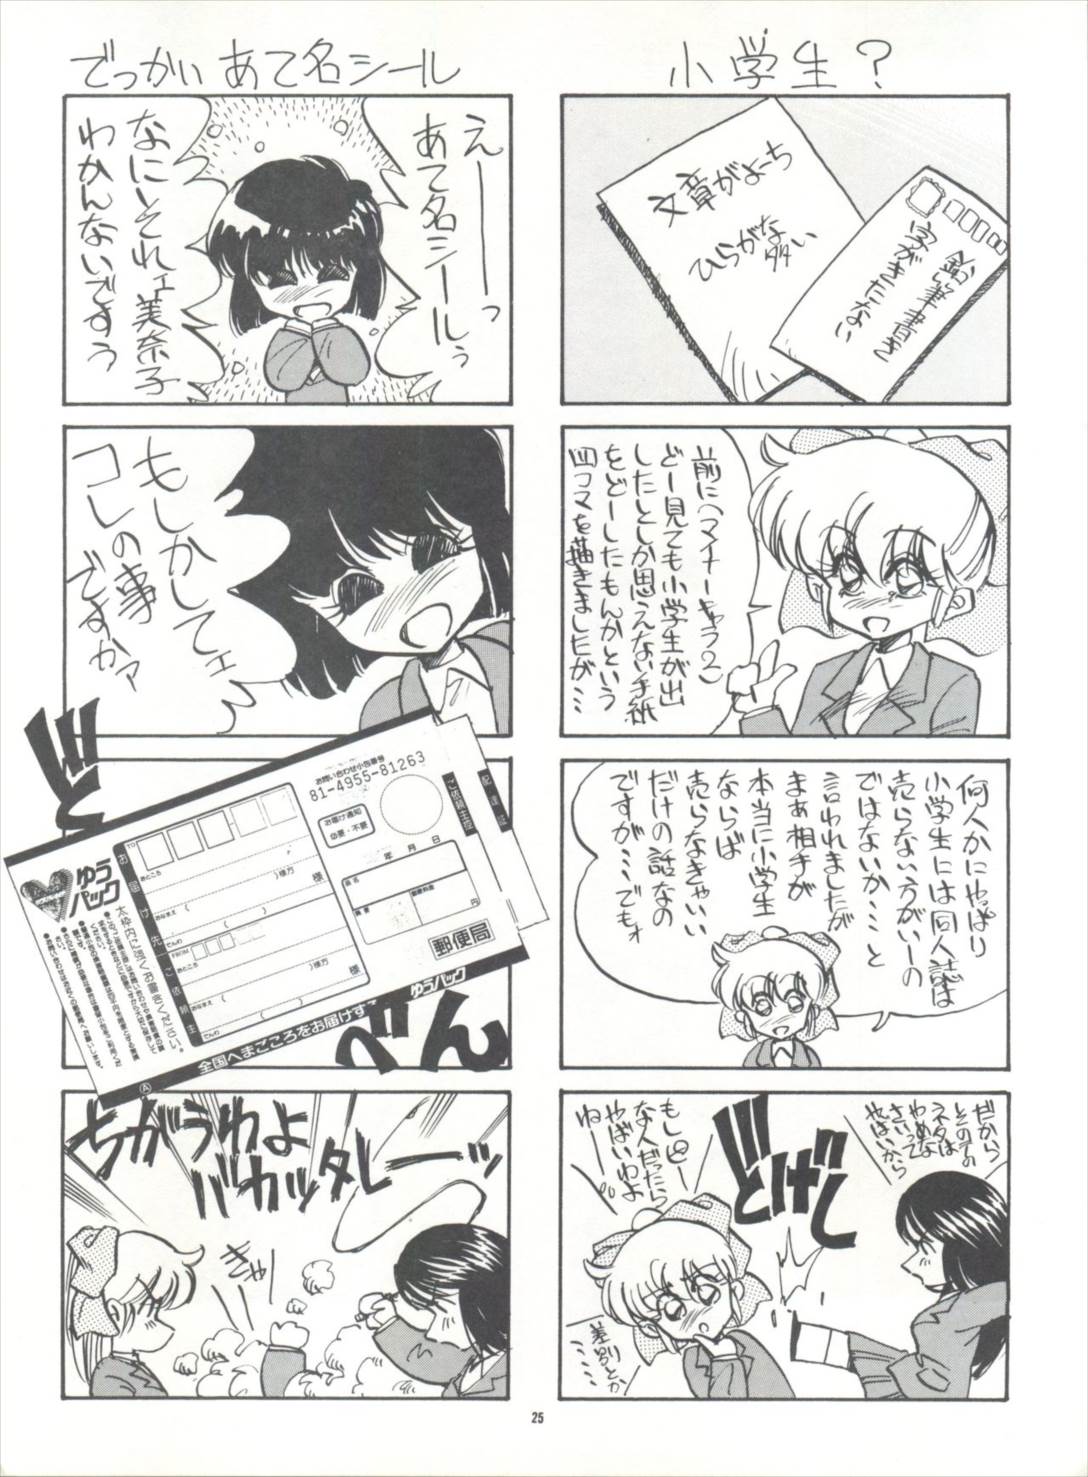 小学生？
文章がよーち
ひらがな
多い
鉛筆書き
字がきたない
前に(マナーキャラ2)
どー見ても小学生が出
したとしか思えない手紙
をどーしたもんかという
四コマを描きましたが…
何人かにやっぱり
小学生には同人誌は
売らない方がいーの
ではないか…と
言われましたが
まぁ相手が
本当に小学生
ならば
売らなきゃいい
だけの話なの
ですが…でもォ
だから
その手の
ネタは
やめな
さいって
やばいから
どげし
もし
な人だったら
やばいわよ
ねー
差別とか
……
でっかいあて名シール
えーーーっ
あて名シールぅ
なにいそれェ美奈子
わかんないですぅ
もしかしてェ
コレの事
ですかァ
どべん
お問い合わせ小包番号
81-4955-81263
ゆうパック
お届け先
TO
おところ
おなまえ
様方
様
でんわ
ご依頼主
FROM
おところ
様方
おなまえ
様
でんわ
お届け通知
必要・不要
年 月 日
円
郵便局
ご依頼主控
配達証
太枠内に強くお書きください。
全国へまごころをお届けする ゆうパック
Ⓐ
ちがうわよ
バカッタレーッ
きゃー
25